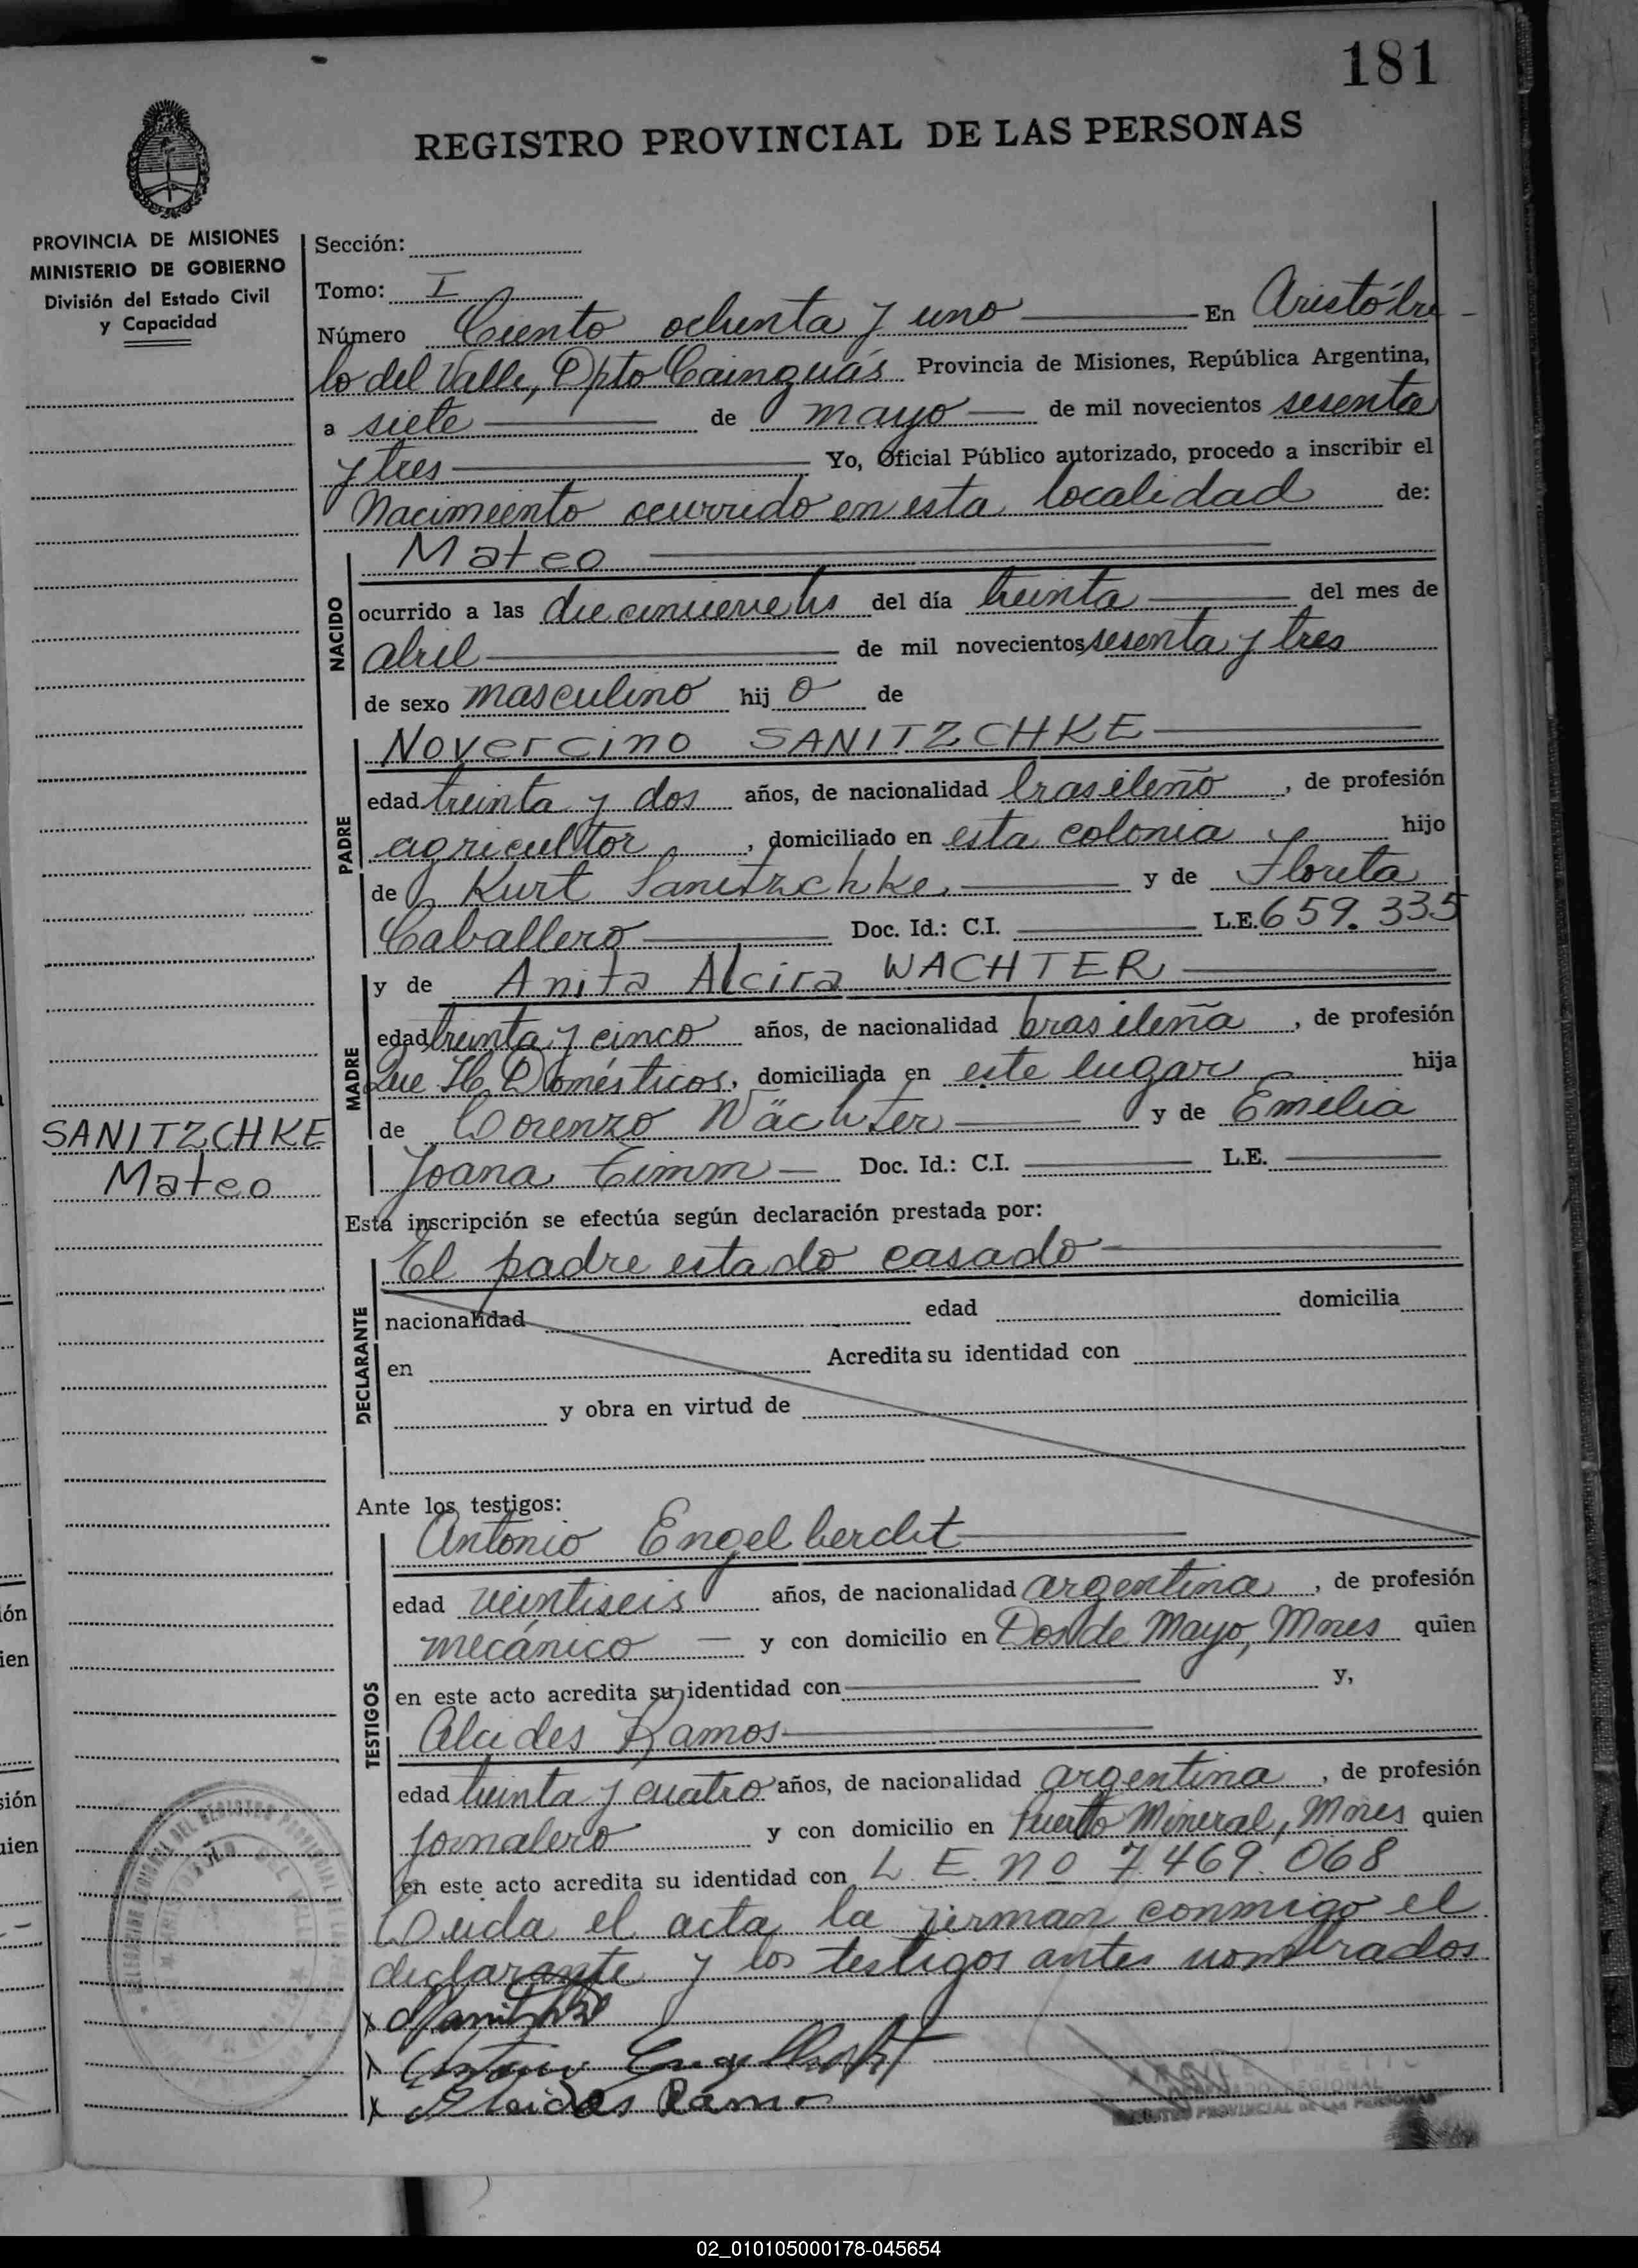 181
REGISTRO PROVINCIAL DE LAS PERSONAS
PROVINCIA DE MISIONES
MINISTERIO DE GOBIERNO
División del Estado Civil
y Capacidad
Sección:
Tomo: I
Número Ciento ochenta y uno En Aristóbu-
lo del Valle, Dpto Cainguás Provincia de Misiones, República Argentina,
a siete de mayo de mil novecientos sesenta
y tres Yo, Oficial Público autorizado, procedo a inscribir el
Nacimiento ocurrido en esta localidad de:
NACIDO
Mateo
ocurrido a las diecinueve hs del día treinta del mes de
abril de mil novecientos sesenta y tres
de sexo masculino hijo de
PADRE
Novercino SANITZCHKE
edad treinta y dos años, de nacionalidad brasileño, de profesión
agricultor, domiciliado en esta colonia hijo
de Kurt Sanitzchke y de Floreta
Caballero Doc. Id.: C.I. L.E. 659.335
MADRE
y de Anita Alcira WACHTER
edad treinta y cinco años, de nacionalidad brasileña, de profesión
Que H. Domésticos, domiciliada en este lugar hija
de Lorenzo Wächter y de Emilia
Joana Timm Doc. Id.: C.I. L.E.
SANITZCHKE
Mateo
Esta inscripción se efectúa según declaración prestada por:
DECLARANTE
El padre estado casado
nacionalidad edad domicilia
en Acredita su identidad con
y obra en virtud de
Ante los testigos:
TESTIGOS
Antonio Engelberdt
edad veintiseis años, de nacionalidad argentina, de profesión
mecánico y con domicilio en Dos de Mayo, Mnes quien
en este acto acredita su identidad con y,
Alcides Ramos
edad treinta y cuatro años, de nacionalidad argentina, de profesión
jornalero y con domicilio en Puerto Mineral, Mnes quien
en este acto acredita su identidad con L. E. no 7.469.068
Leida el acta la firman conmigo el
declarante y los testigos antes nombrados
x
x Antonio
x Alcides Ramos
REGIONAL
REGISTRO PROVINCIAL DE LAS PERSONAS
02_010105000178-045654